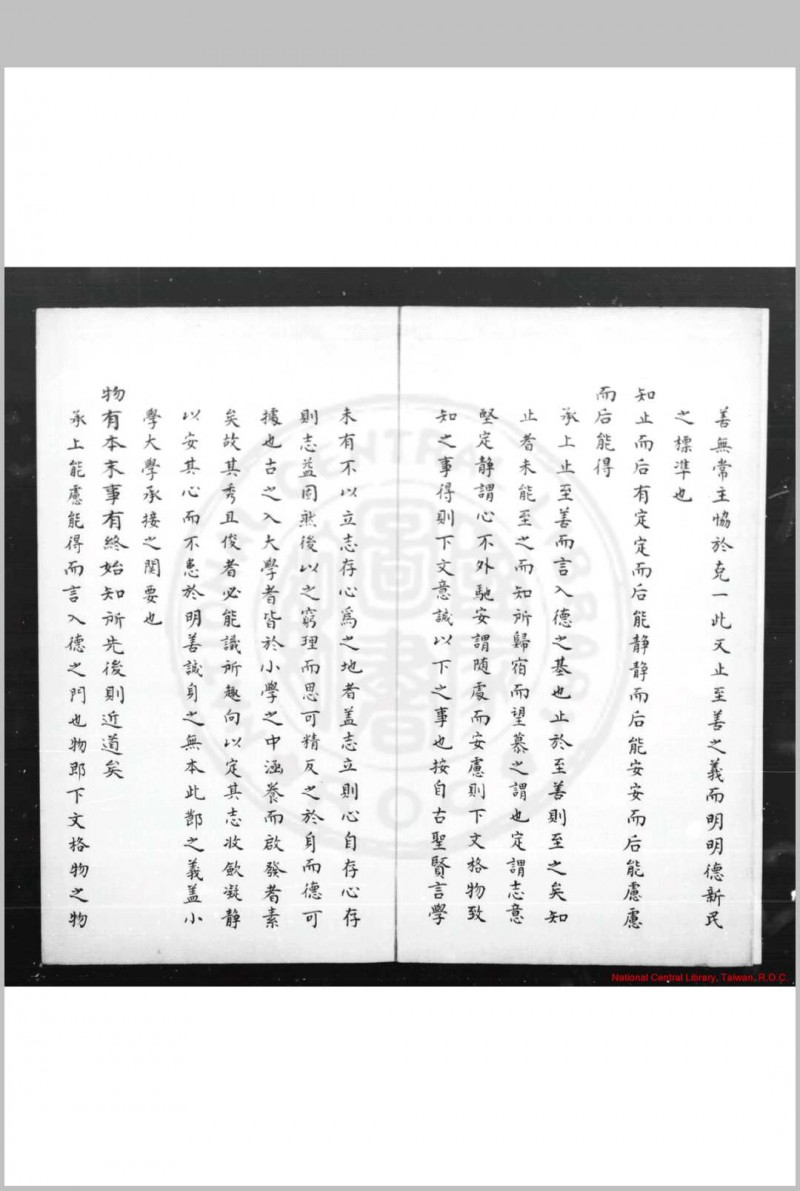 善無常主恊於克一此又止至善之義而明明德新民
之標準也
知止而后有定定而后能靜靜而后能安安而后能慮慮
而后能得
承上止至善而言入德之基也止於至善則至之矣知
止者未能至之而知所歸宿而望慕之謂也定謂志意
堅定靜謂心不外馳安謂随處而安慮則下文格物致
知之事得則下文意誠以下之事也按自古聖賢言學
未有不以立志存心爲之地者盖志立則心自存心存
則志益固然後以之窮理而思可精反之於身而德可
據也古之入大學者皆於小學之中涵養而啟發者素
矣故其秀且俊者必能識所趣向以定其志收斂凝静
以安其心而不患於明善誠身之無本此節之義盖小
學大學承接之関要也
物有本末事有終始知所先後則近道矣
承上能慮能得而言入德之門也物即下文格物之物
National Central Library, Taiwan, R.O.C.